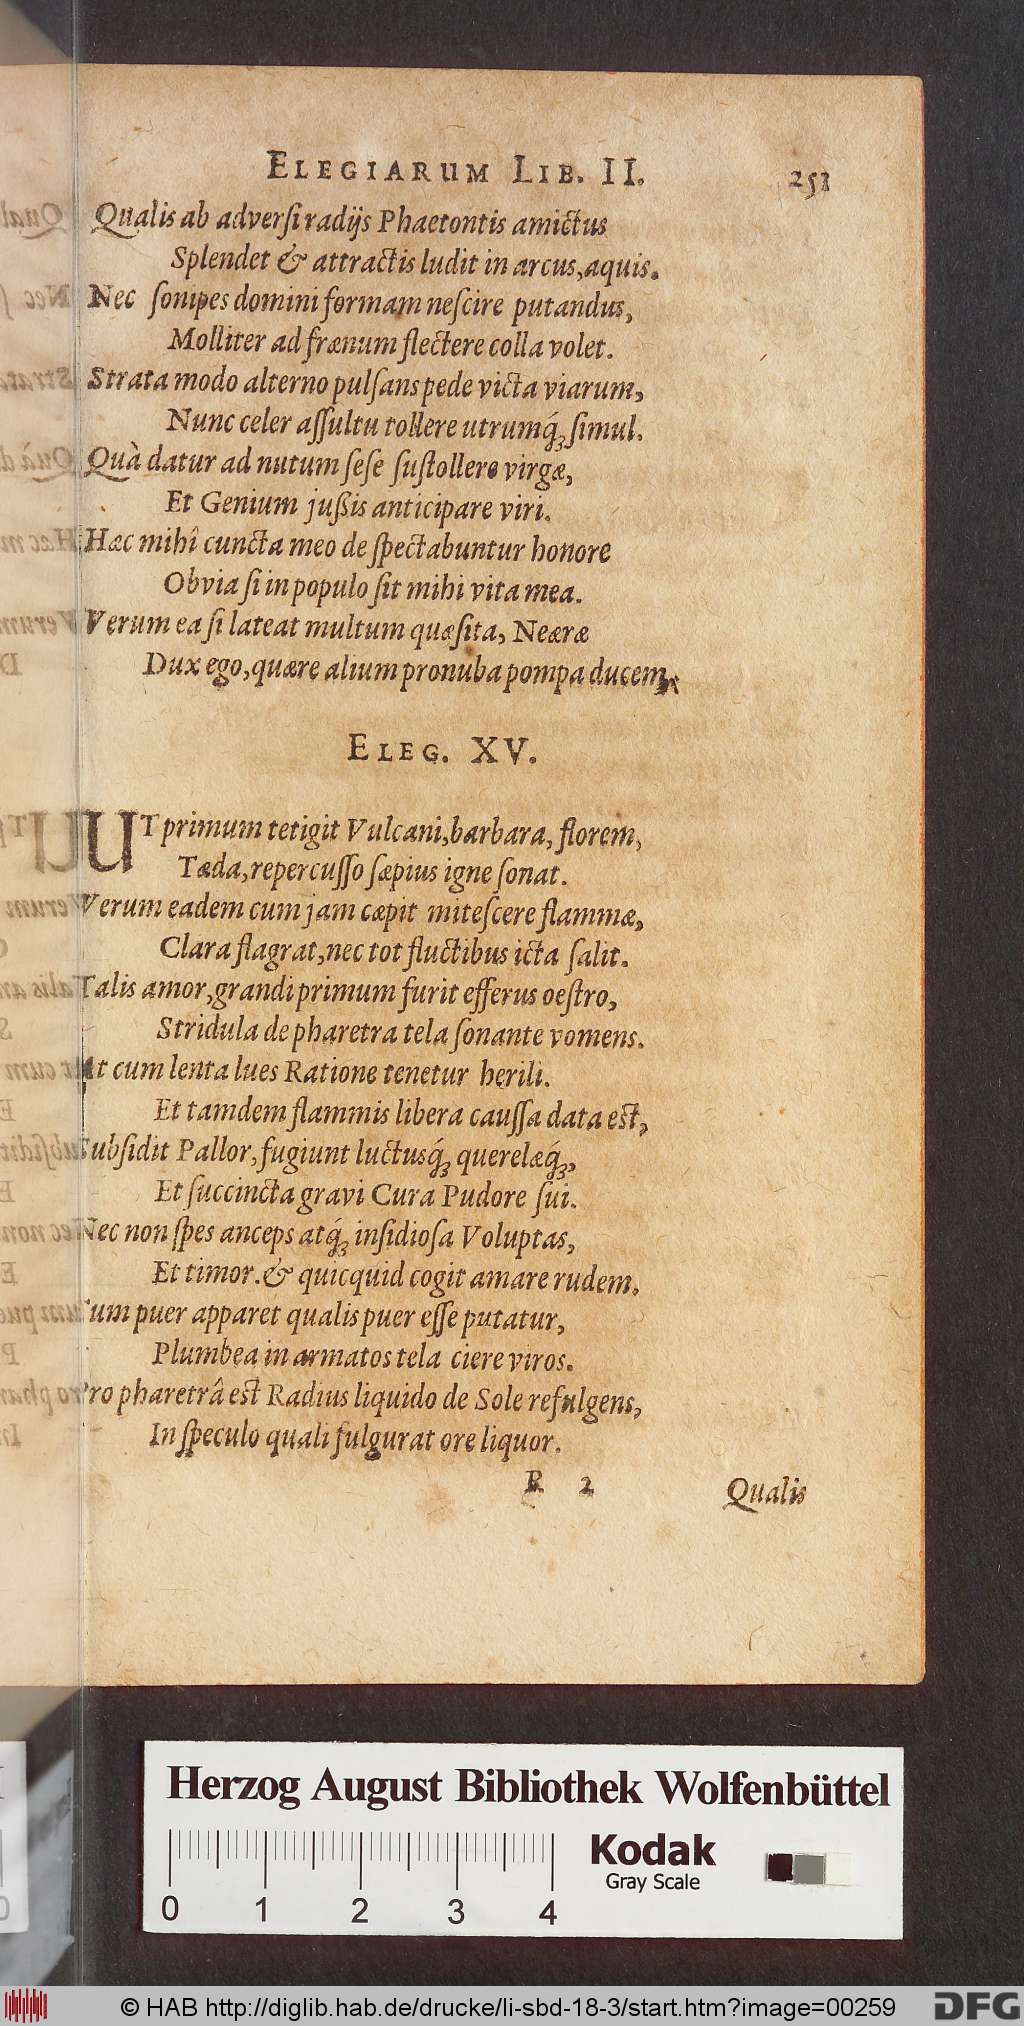 ELEGIARUM LIB. II. 251
Qualis ab adverſi radijs Phaetontis amictus
Splendet & attractis ludit in arcus, aquis.
Nec ſonipes domini formam neſcire putandus,
Molliter ad frænum flectere colla volet.
Strata modo alterno pulſans pede victa viarum,
Nunc celer aſſultu tollere utrumq́; ſimul.
Quà datur ad nutum ſeſe ſuſtollere virgæ,
Et Genium jußis anticipare viri.
Hæc mihî cuncta meo de ſpectabuntur honore
Obvia ſi in populo ſit mihi vita mea.
Verum ea ſi lateat multum quæſita, Neæræ
Dux ego, quære alium pronuba pompa ducem.
ELEG. XV.
UT primum tetigit Vulcani, barbara, florem,
Tæda, repercuſſo ſæpius igne ſonat.
Verum eadem cum jam cæpit miteſcere flammæ,
Clara flagrat, nec tot fluctibus icta ſalit.
Talis amor, grandi primum furit efferus oeſtro,
Stridula de pharetra tela ſonante vomens.
At cum lenta lues Ratione tenetur herili.
Et tamdem flammis libera cauſſa data est,
Subſidit Pallor, fugiunt luctusq́; querelæq́;,
Et ſuccincta gravi Cura Pudore ſui.
Nec non ſpes anceps atq́; inſidioſa Voluptas,
Et timor. & quicquid cogit amare rudem.
Tum puer apparet qualis puer eſſe putatur,
Plumbea in armatos tela ciere viros.
Pro pharetrâ est Radius liquido de Sole refulgens,
In ſpeculo quali fulgurat ore liquor.
R 2 Qualis
Herzog August Bibliothek Wolfenbüttel
Kodak
Gray Scale
0 1 2 3 4
© HAB http://diglib.hab.de/drucke/li-sbd-18-3/start.htm?image=00259 DFG